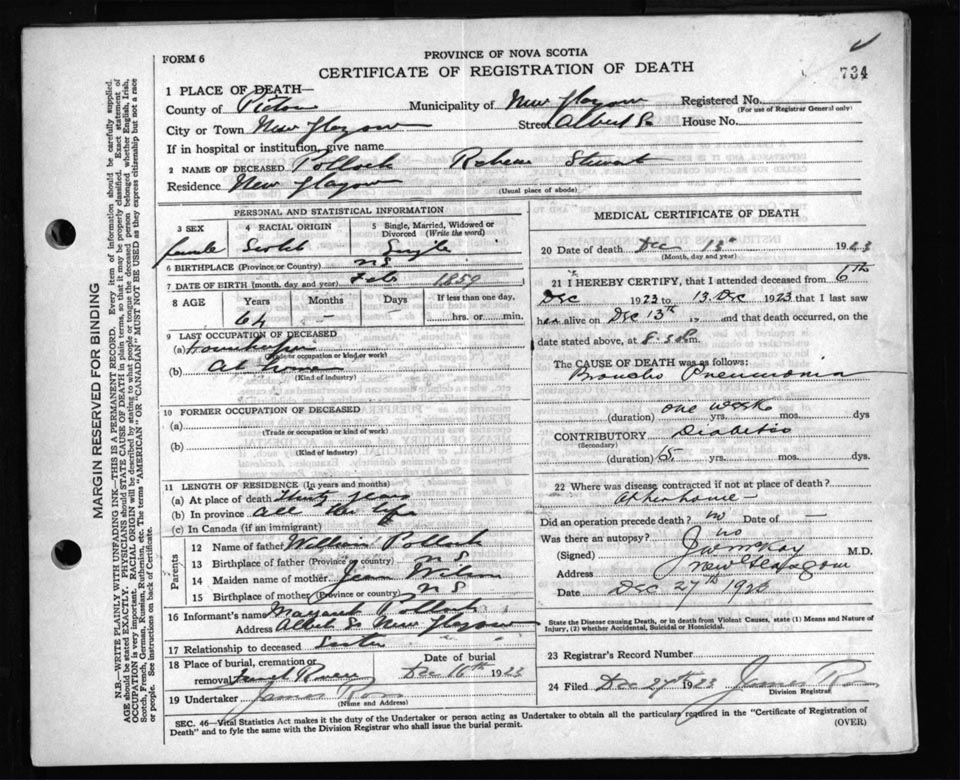 734
FORM 6
PROVINCE OF NOVA SCOTIA
CERTIFICATE OF REGISTRATION OF DEATH
1 PLACE OF DEATH—
County of Pictou Municipality of New Glasgow Registered No.
(For use of Registrar General only)
City or Town New Glasgow Street Albert St House No.
If in hospital or institution, give name
2 NAME OF DECEASED Pollock Stewart
Residence New Glasgow
(Usual place of abode)
PERSONAL AND STATISTICAL INFORMATION
3 SEX 4 RACIAL ORIGIN 5 Single, Married, Widowed or
Divorced (Write the word)
female Scotch Single
6 BIRTHPLACE (Province or Country) NS
7 DATE OF BIRTH (month, day and year) Feb 1859
8 AGE Years Months Days If less than one day,
64 — hrs. or min.
9 LAST OCCUPATION OF DECEASED
(a) Housekeeper
(Trade or occupation or kind of work)
(b) At home
(Kind of industry)
10 FORMER OCCUPATION OF DECEASED
(a)
(Trade or occupation or kind of work)
(b)
(Kind of industry)
11 LENGTH OF RESIDENCE (In years and months)
(a) At place of death Thirty years
(b) In province All her life
(c) In Canada (if an immigrant)
Parents
12 Name of father William Pollock
13 Birthplace of father (Province or country) NS
14 Maiden name of mother Jean Wilson
15 Birthplace of mother (Province or country) NS
16 Informant's name Margaret Pollock
Address Albert St New Glasgow
17 Relationship to deceased Sister
18 Place of burial, cremation or
removal
Date of burial
Dec 16th 1923
19 Undertaker James Ross
(Name and Address)
MEDICAL CERTIFICATE OF DEATH
20 Date of death Dec 13th 1923
(Month, day and year)
21 I HEREBY CERTIFY, that I attended deceased from 6th
Dec 1923 to 13 Dec 1923 that I last saw
her alive on Dec 13th 19 and that death occurred, on
date stated above, at m.
The CAUSE OF DEATH was as follows:
Broncho Pneumonia
(duration) one week yrs. mos. dys
CONTRIBUTORY Diabetes
(Secondary)
(duration) 5 yrs. mos. dys
22 Where was disease contracted if not at place of death?
At her home —
Did an operation precede death? no Date of —
Was there an autopsy? no
(Signed) J W McKay M.D.
Address New Glasgow
Date Dec 27th 1923
State the Disease causing Death, or in death from Violent Causes, state (1) Means and Nature of
Injury, (2) whether Accidental, Suicidal or Homicidal.
23 Registrar's Record Number
24 Filed Dec 27th 1923 James Ross
Division Registrar
SEC. 46—Vital Statistics Act makes it the duty of the Undertaker or person acting as Undertaker to obtain all the particulars required in the "Certificate of Registration of
Death" and to fyle the same with the Division Registrar who shall issue the burial permit.
(OVER)
MARGIN RESERVED FOR BINDING
N.B.—WRITE PLAINLY WITH UNFADING INK—THIS IS A PERMANENT RECORD. Every item of information should be carefully supplied.
AGE should be stated EXACTLY. PHYSICIANS should STATE CAUSE OF DEATH in plain terms, so that it may be properly classified. Exact statement of
OCCUPATION is very important. RACIAL ORIGIN will be described by stating to what people or tongue the deceased person belonged whether English, Irish,
Scotch, French, German, Russian, Ruthenian, etc. The terms "AMERICAN" OR "CANADIAN" MUST NOT BE USED as they express citizenship but not a race
or people. See instructions on back of Certificate.